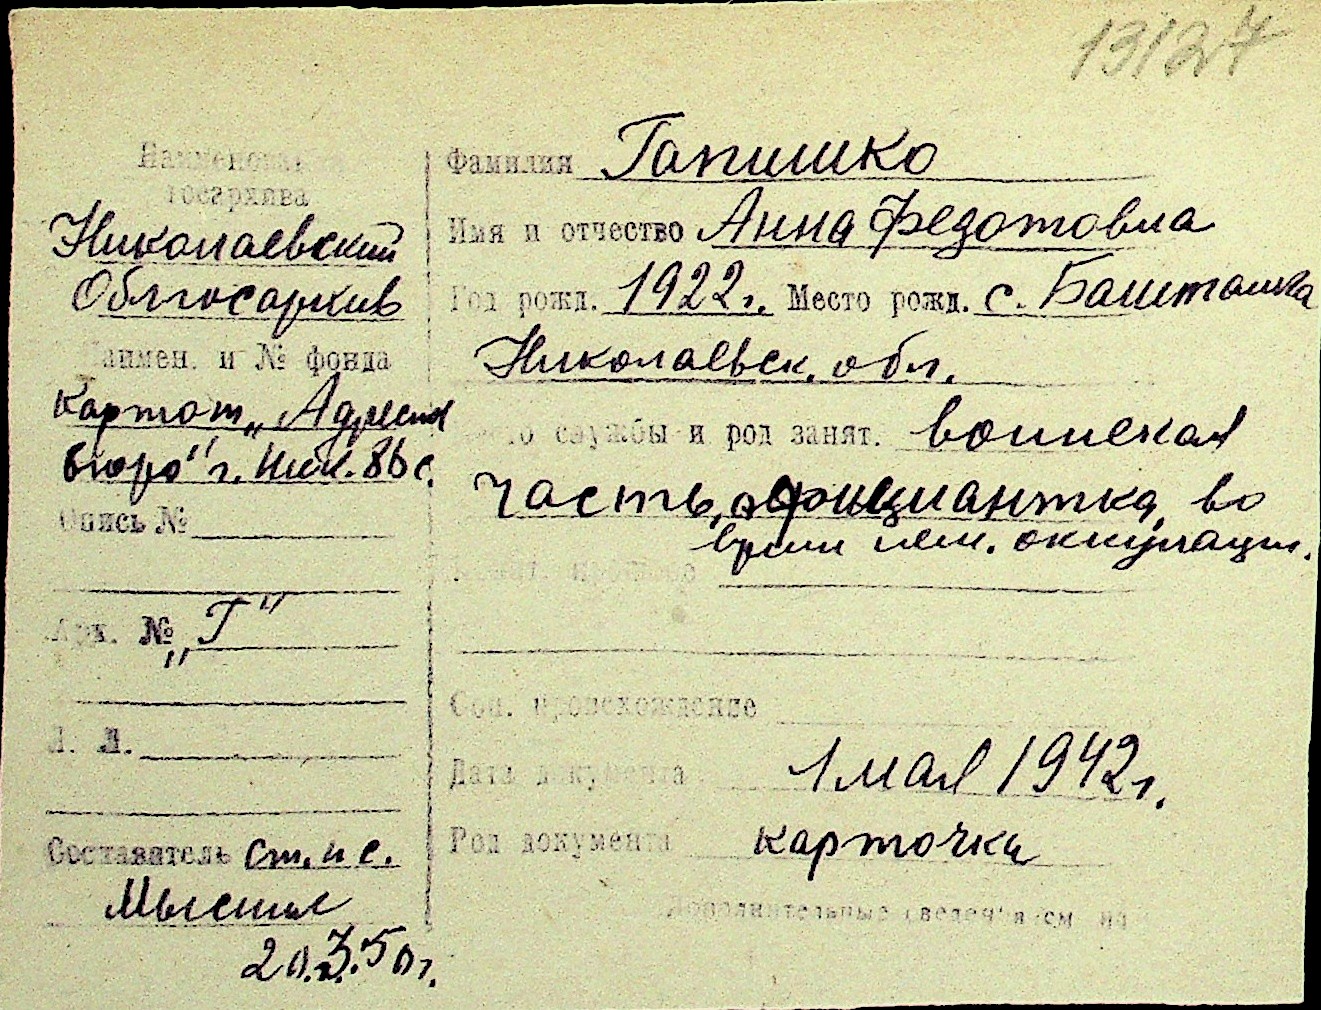 13127
Наименование
госархива
Николаевский
Облгосархив
Наимен. и № фонда
Картот. „Адресн
бюро" г. Ник. 86 с.
Опись №
Арх. № „Г"
Л. Л.
Составитель ст. н с.
20.3.50 г.
Фамилия Гапишко
Имя и отчество Анна Федотовна
Год рожд. 1922 г. Место рожд. с. Баштанка
Николаевск. обл.
Место службы и род занят. воинская
часть, официантка, во
время нем. оккупации.
Соц. происхождение
Дата документа 1 мая 1942 г.
Род документа карточка
Дополнительные сведения см на